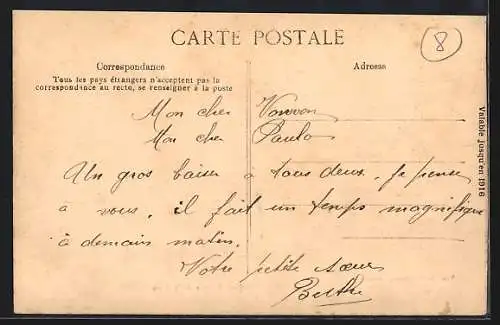 CARTE POSTALE
8
Correspondance
Adresse
Tous les pays étrangers n'acceptent pas la
correspondance au recto, se renseigner à la poste
Mon cher Vonvon
Mon cher Paulo
Un gros baiser à tous deux. Je pense
à vous. il fait un temps magnifique
à demain matin.
Votre petite sœur
Berthe
Valable jusqu'en 1916